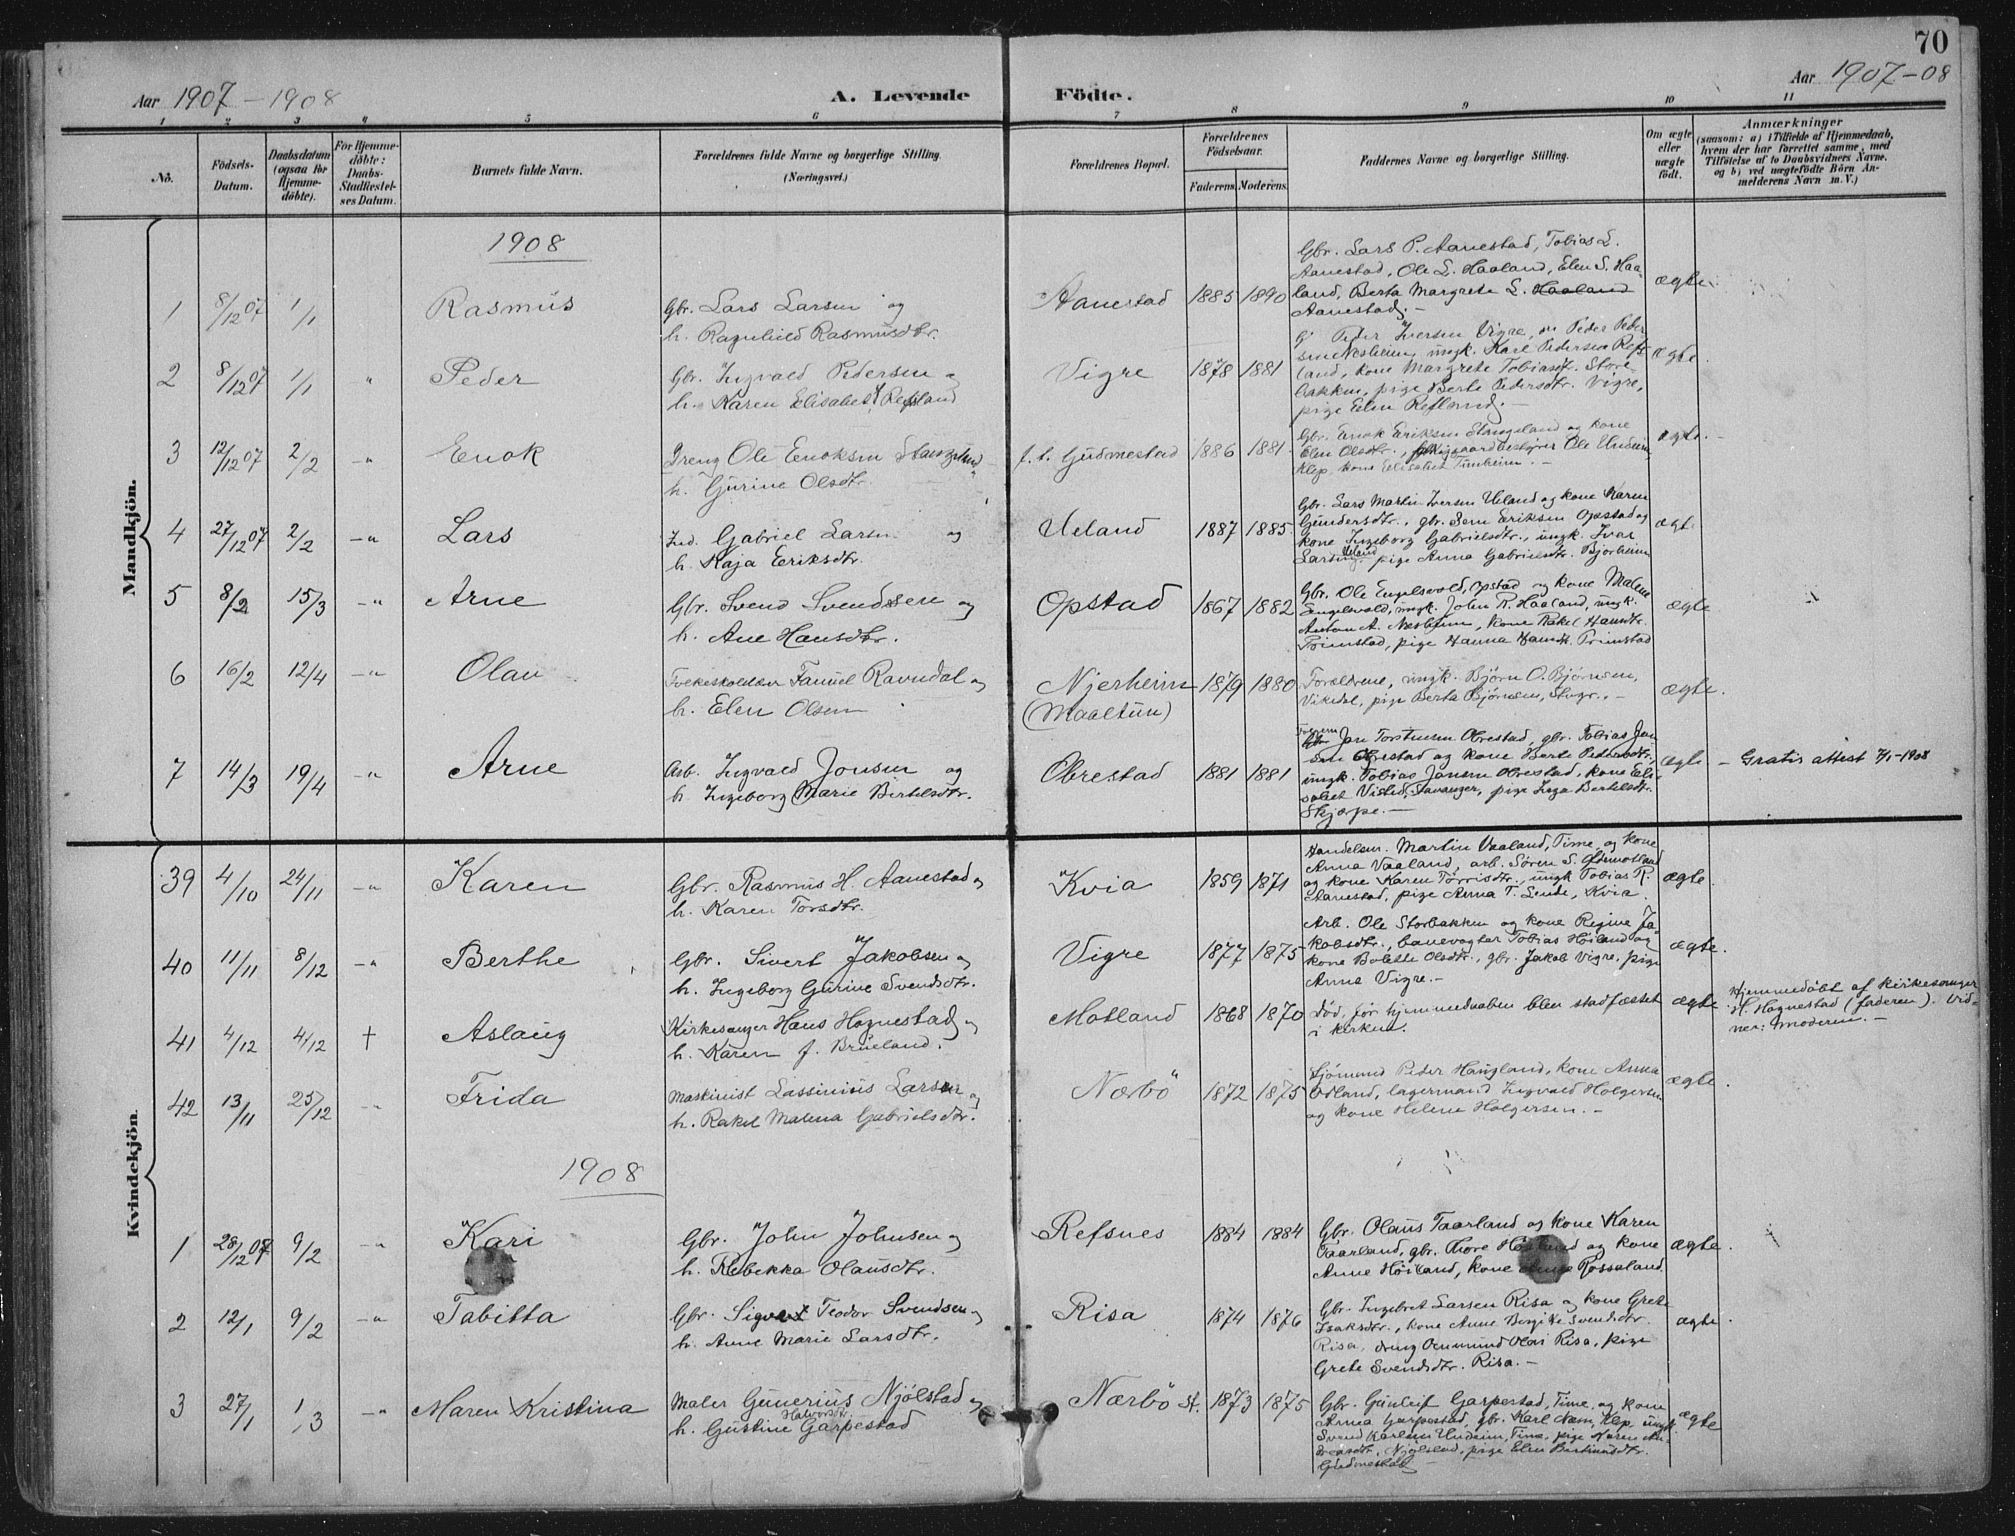 70
Aar 1907-1908
A. Levende
Födte.
Aar 1907-08
1 2 3 4 5 6 7 8 9 10 11
No.
Födsels-
Datum.
Daabsdatum
(ogsaa for
Hjemme-
döbte).
For Hjemme-
döbte:
Daabs-
Stadfæstel-
ses Datum.
Barnets fulde Navn.
Forældrenes fulde Navne og borgerlige Stilling.
(Næringsvei.)
Forældrenes Bopæl.
Forældrenes
Födselsaar.
Faderens. Moderens.
Faddernes Navne og borgerlige Stilling.
Om ægte
eller
uægte
födt.
Anmærkninger
(saasom: a) i Tilfælde af Hjemmedaab,
hvem der har forrettet samme, med
Tilföielse af to Daabsvidners Navne.
og b) ved uægtefödte Börn An-
melderens Navn m. V.)
Mandkjön.
1908
1 8/12 07 1/1 Rasmus
Gbr. Lars Larsen og
h. Ragnhild Rasmusdtr.
Aanestad 1885 1890
Gbr. Lars P. Aanestad, Tobias L.
Aanestad, Ole L. Haaland, Elen S. Haa-
land, Berta Margrete L. Haaland
Aanestad.-
ægte
2 8/12 07 1/1 -"- Peder
Gbr. Ingvald Pedersen og
h. Karen Elisabet Refsland
Vigre 1878 1881
Peder Iversen Vigre, Peder Peder-
sen Nesheim, ungk. Karl Pedersen Refs-
land, kone Margrete Tobiasd. Store-
bakken, pige Berte Pedersdtr. Vigre,
pige Elen Refsland.-
ægte.
3 12/12 07 2/2 -"- Enok
Dreng Ole Enoksen Stangeland
h. Gurine Olsdtr.
f. t. Gudmestad 1886 1881
Gbr. Enok Eriksen Stangeland og kone
Elen Olsdtr., Ole Undeim
Klep, kone Elisabet Tunheim.-
ægte.
4 27/12 07 2/2 -"- Lars
Ind. Gabriel Larsen og
h. Kaja Eriksdtr.
Ueland 1887 1885
Gbr. Lars Martin Iversen Ueland og kone Karen
Gundersdtr., gbr. Sern Eriksen Opstad og
kone Ingeborg Gabrielsdtr., ungk. Ivar
Larsen Ueland, pige Anna Gabrielsdtr. Bjorheim
ægte
5 8/2 15/3 -"- Arne
Gbr. Svend Svendsen og
h. Ane Hansdtr.
Opstad 1867 1882
Gbr. Ole Engelsvold, Opstad og kone Malene
Engelsvold, ungk. John R. Haaland, ungk.
Anton A. Nesheim, kone Rakel Hansdtr.
Primstad, pige Hanna Hansdt. Primstad
ægte
6 16/2 12/4 -"- Olav
Folkeskolelær Fanuel Ravndal og
h. Elen Olsen
Njerheim
(Maaltun)
1879 1880
Forældrene, ungk. Bjørn O. Bjørnsen,
Vikedal, pige Berta Bjørnsen,
ægte.
7 14/3 19/4 -"- Arne
Arb. Ingvald Jonsen og
h. Ingeborg Marie Bertelsdtr.
Obrestad 1881 1881
Gbr Jon Torstensen Obrestad, gbr. Tobias Jon-
sen Obrestad og kone Berte Pedersdtr.
ungk. Tobias Jonsen Obrestad, kone Eli-
sabet Visted, Stavanger, pige Inga Bertelsdtr.
Skjærpe.-
ægte - Gratis attest 7/1-1908
Kvindekjön.
39 4/10 24/11 -"- Karen
Gbr. Rasmus H. Aanestad og
h. Karen Torsdtr.
Kvia 1859 1871
Handelsm. Martin Vaaland, Time, og kone
Anna Vaaland, arb. Søren S. Odemotland
og kone Karen Torrisdtr., ungk Tobias R.
Aanestad, pige Anna T. Lende, Kvia.
ægte.
40 11/11 8/12 -"- Berthe
Gbr. Sivert Jakobsen og
h. Ingeborg Gurine Svendsdtr.
Vigre 1877 1875
Arb. Ole Storbakken og kone Regine Ja-
kobsdtr., banevogter Tobias Høiland og
kone Bolette Olsdtr., gbr. Jakob Vigre, pige
Anna Vigre.-
ægte.
41 4/12 4/12 † Aslaug
Kirkesanger Hans Hognestad og
h. Karen f. Brueland.
Motland 1868 1870
Død, før hjemmedaaben blev stadfæstet
i kirken.
ægte
Hjemmedøbt af kirkesanger
H. Hognestad (faderen). Vid-
ner: Moderen.-
42 13/11 25/12 -"- Frida
Maskinist Lassinius Larsen og
h. Rakel Malena Gabrielsdtr.
Nærbö 1872 1875
Sjömand Peder Haugland, kone Anna
Udland, lagermand Ingvald Holgersen
og kone Helene Holgersen.-
ægte.
1908
1 28/12 07 9/2 -"- Kari
Gbr. John Johnsen og
h. Rebekka Olausdtr.
Refsnes 1884 1884
Gbr. Olaus Taarland og kone Karen
Taarland, gbr. Thore Høiland og kone
Anne Höiland, kone Anne Rossaland.
ægte.
2 12/1 9/2 -"- Tabitta
Gbr. Sigvart Teodor Svendsen og
h. Anne Marie Larsdtr.
Risa 1874 1876
Gbr. Ingebret Larsen Risa og kone Grete
Isaksdtr., kone Anne Bergike Svendsdtr
Risa, dreng Omund Olai Risa, pige
Grete Svendsdtr. Risa.-
ægte.
3 27/1 1/3 -"- Maren Kristina
Maler Gunerius Njölstad og
h. Gustine Halvorsdtr. Garpestad
Nærbö st. 1873 1875
Gbr. Gunleif Garpestad, Time, og kone
Anna Garpestad, gbr. Karl Næm, Klep, ungk.
Svend Karlsen Undeim, Time, pige Karen An-
dreasdtr. Njölstad, pige Elen Bertinusdtr.
Gudmestad.-
ægte